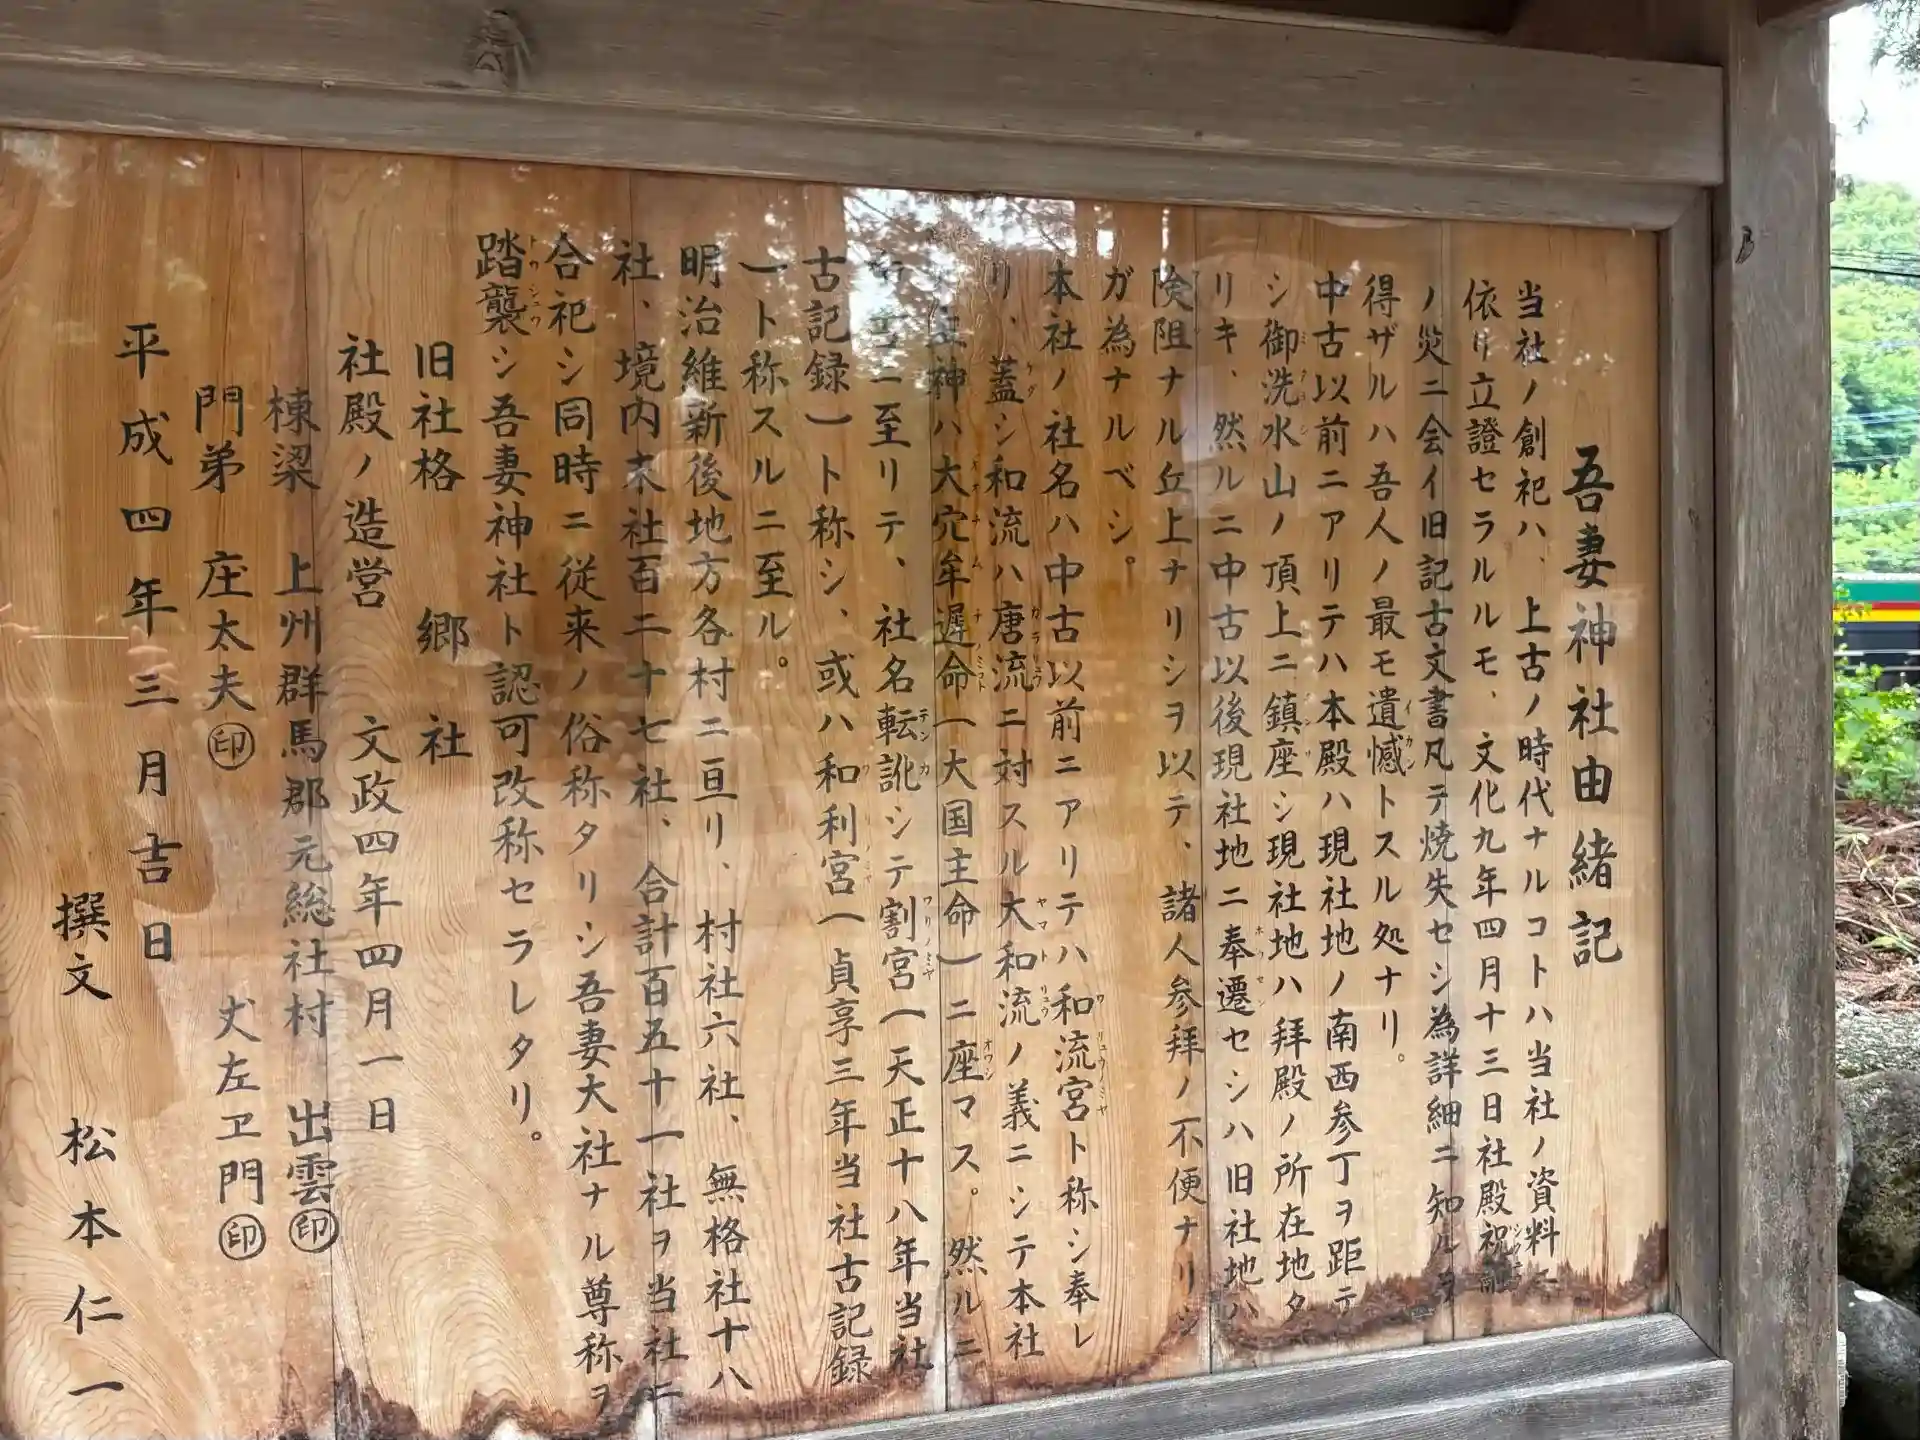 吾妻神社由緒記
当社ノ創祀ハ、上古ノ時代ナルコトハ当社ノ資料ニ
依リ立證セラルルモ、文化九年四月十三日社殿祝融
ノ災ニ会イ旧記古文書凡テ焼失セシ為詳細ニ知ルヲ
得ザルハ吾人ノ最モ遺憾トスル処ナリ。
中古以前ニアリテハ本殿ハ現社地ノ南西参丁ヲ距テ
シ御洗水山ノ頂上ニ鎮座シ現社地ハ拝殿ノ所在地タ
リキ、然ルニ中古以後現社地ニ奉遷セシハ旧社地ハ
険阻ナル丘上ナリシヲ以テ、諸人参拜ノ不便ナリシ
ガ為ナルベシ。
本社ノ社名ハ中古以前ニアリテハ和流宮ト称シ奉レ
リ、蓋シ和流ハ唐流ニ対スル大和流ノ義ニシテ本社
神ハ大穴牟遅命(大国主命)ニ座マス。然ルニ
ニ至リテ、社名転訛シテ割宮(天正十八年当社
古記録)ト称シ、或ハ和利宮(貞享三年当社古記録
)ト称スルニ至ル。
明治維新後地方各村ニ亘リ、村社六社、無格社十八
社、境内末社百二十七社、合計百五十一社ヲ当社ニ
合祀シ同時ニ従来ノ俗称タリシ吾妻大社ナル尊称ヲ
踏襲シ吾妻神社ト認可改称セラレタリ。
旧社格 郷社
社殿ノ造営 文政四年四月一日
棟梁 上州群馬郡元総社村 出雲㊞
門弟 庄太夫㊞ 丈左ヱ門㊞
平成四年三月吉日
撰文 松本仁一